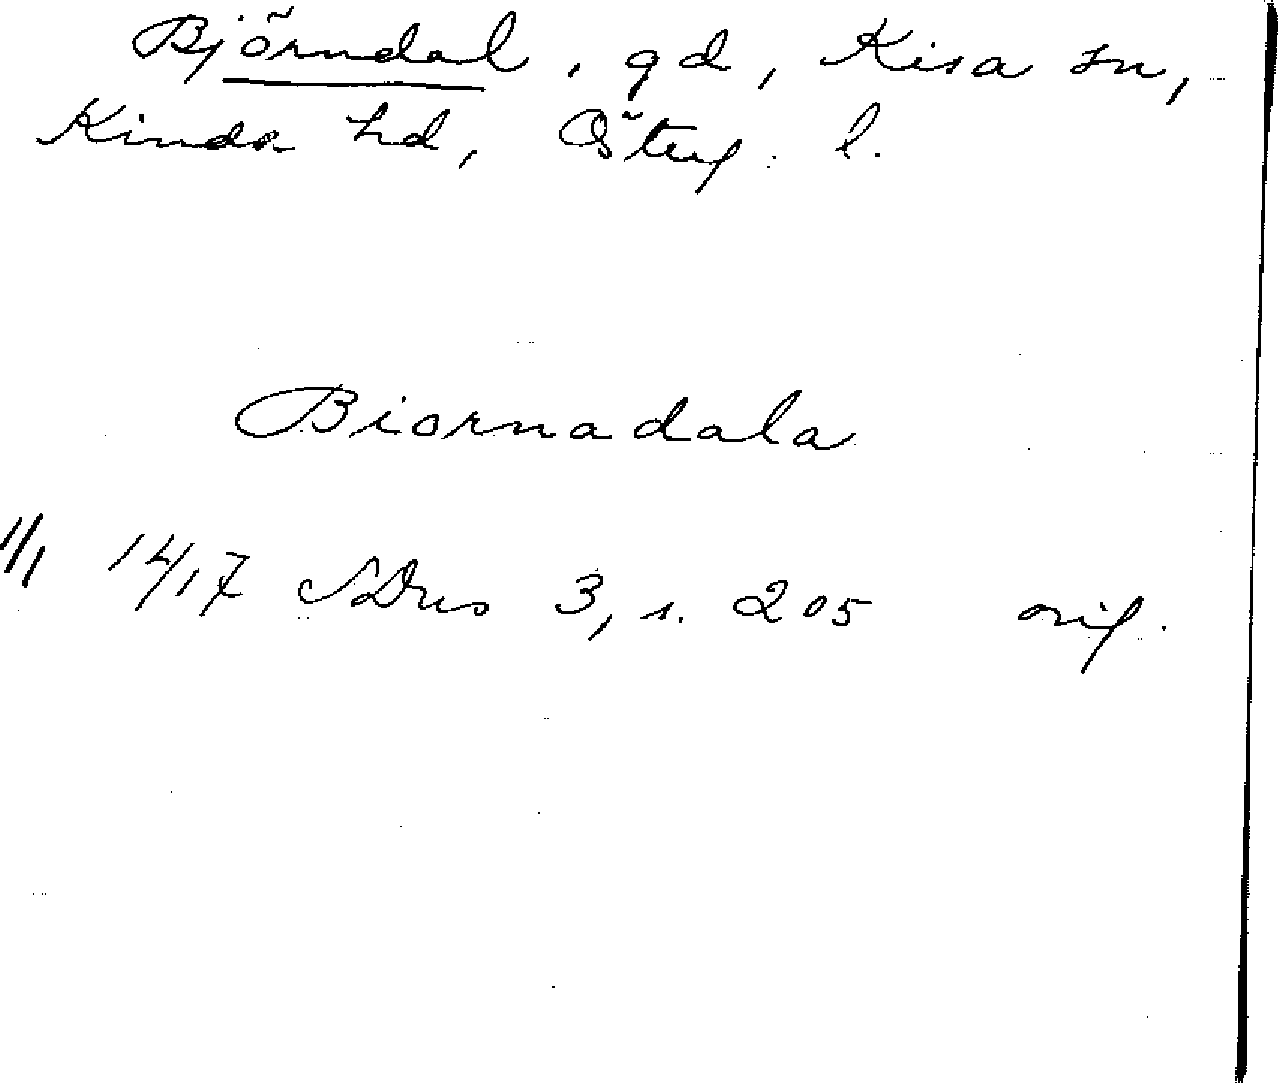 Björndal, gd, Kisa sn,
Kinda hd, Österg. l.
Biornadala
11/1 1417 SDns 3, s. 205 orig.